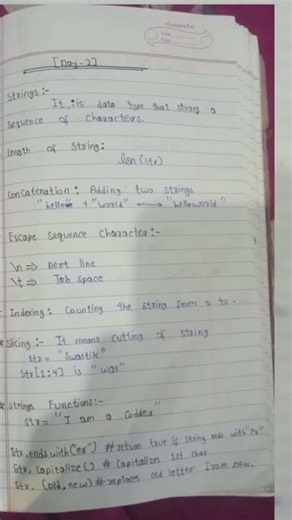 classmate
Date
Page
[Day-2]
Strings:-
It is data type that stores a
sequence of characters.
length of String:
len(str)
Concatenation: Adding two strings
"hello" + "world" → "helloworld"
Escape Sequence Character:-
\n ⇒ next line
\t ⇒ Tab space
Indexing: Counting the string from 0 to
Slicing:- It means cutting of string
Str = "Swastik"
Str[1:4] is "was"
Strings Functions:-
Str = "I am a Codder"
Str.ends with("er") # return true is string ends with "er"
Str. Capitalize() # Capitalizes 1st char
Str. (old, new) # replaces old letter from